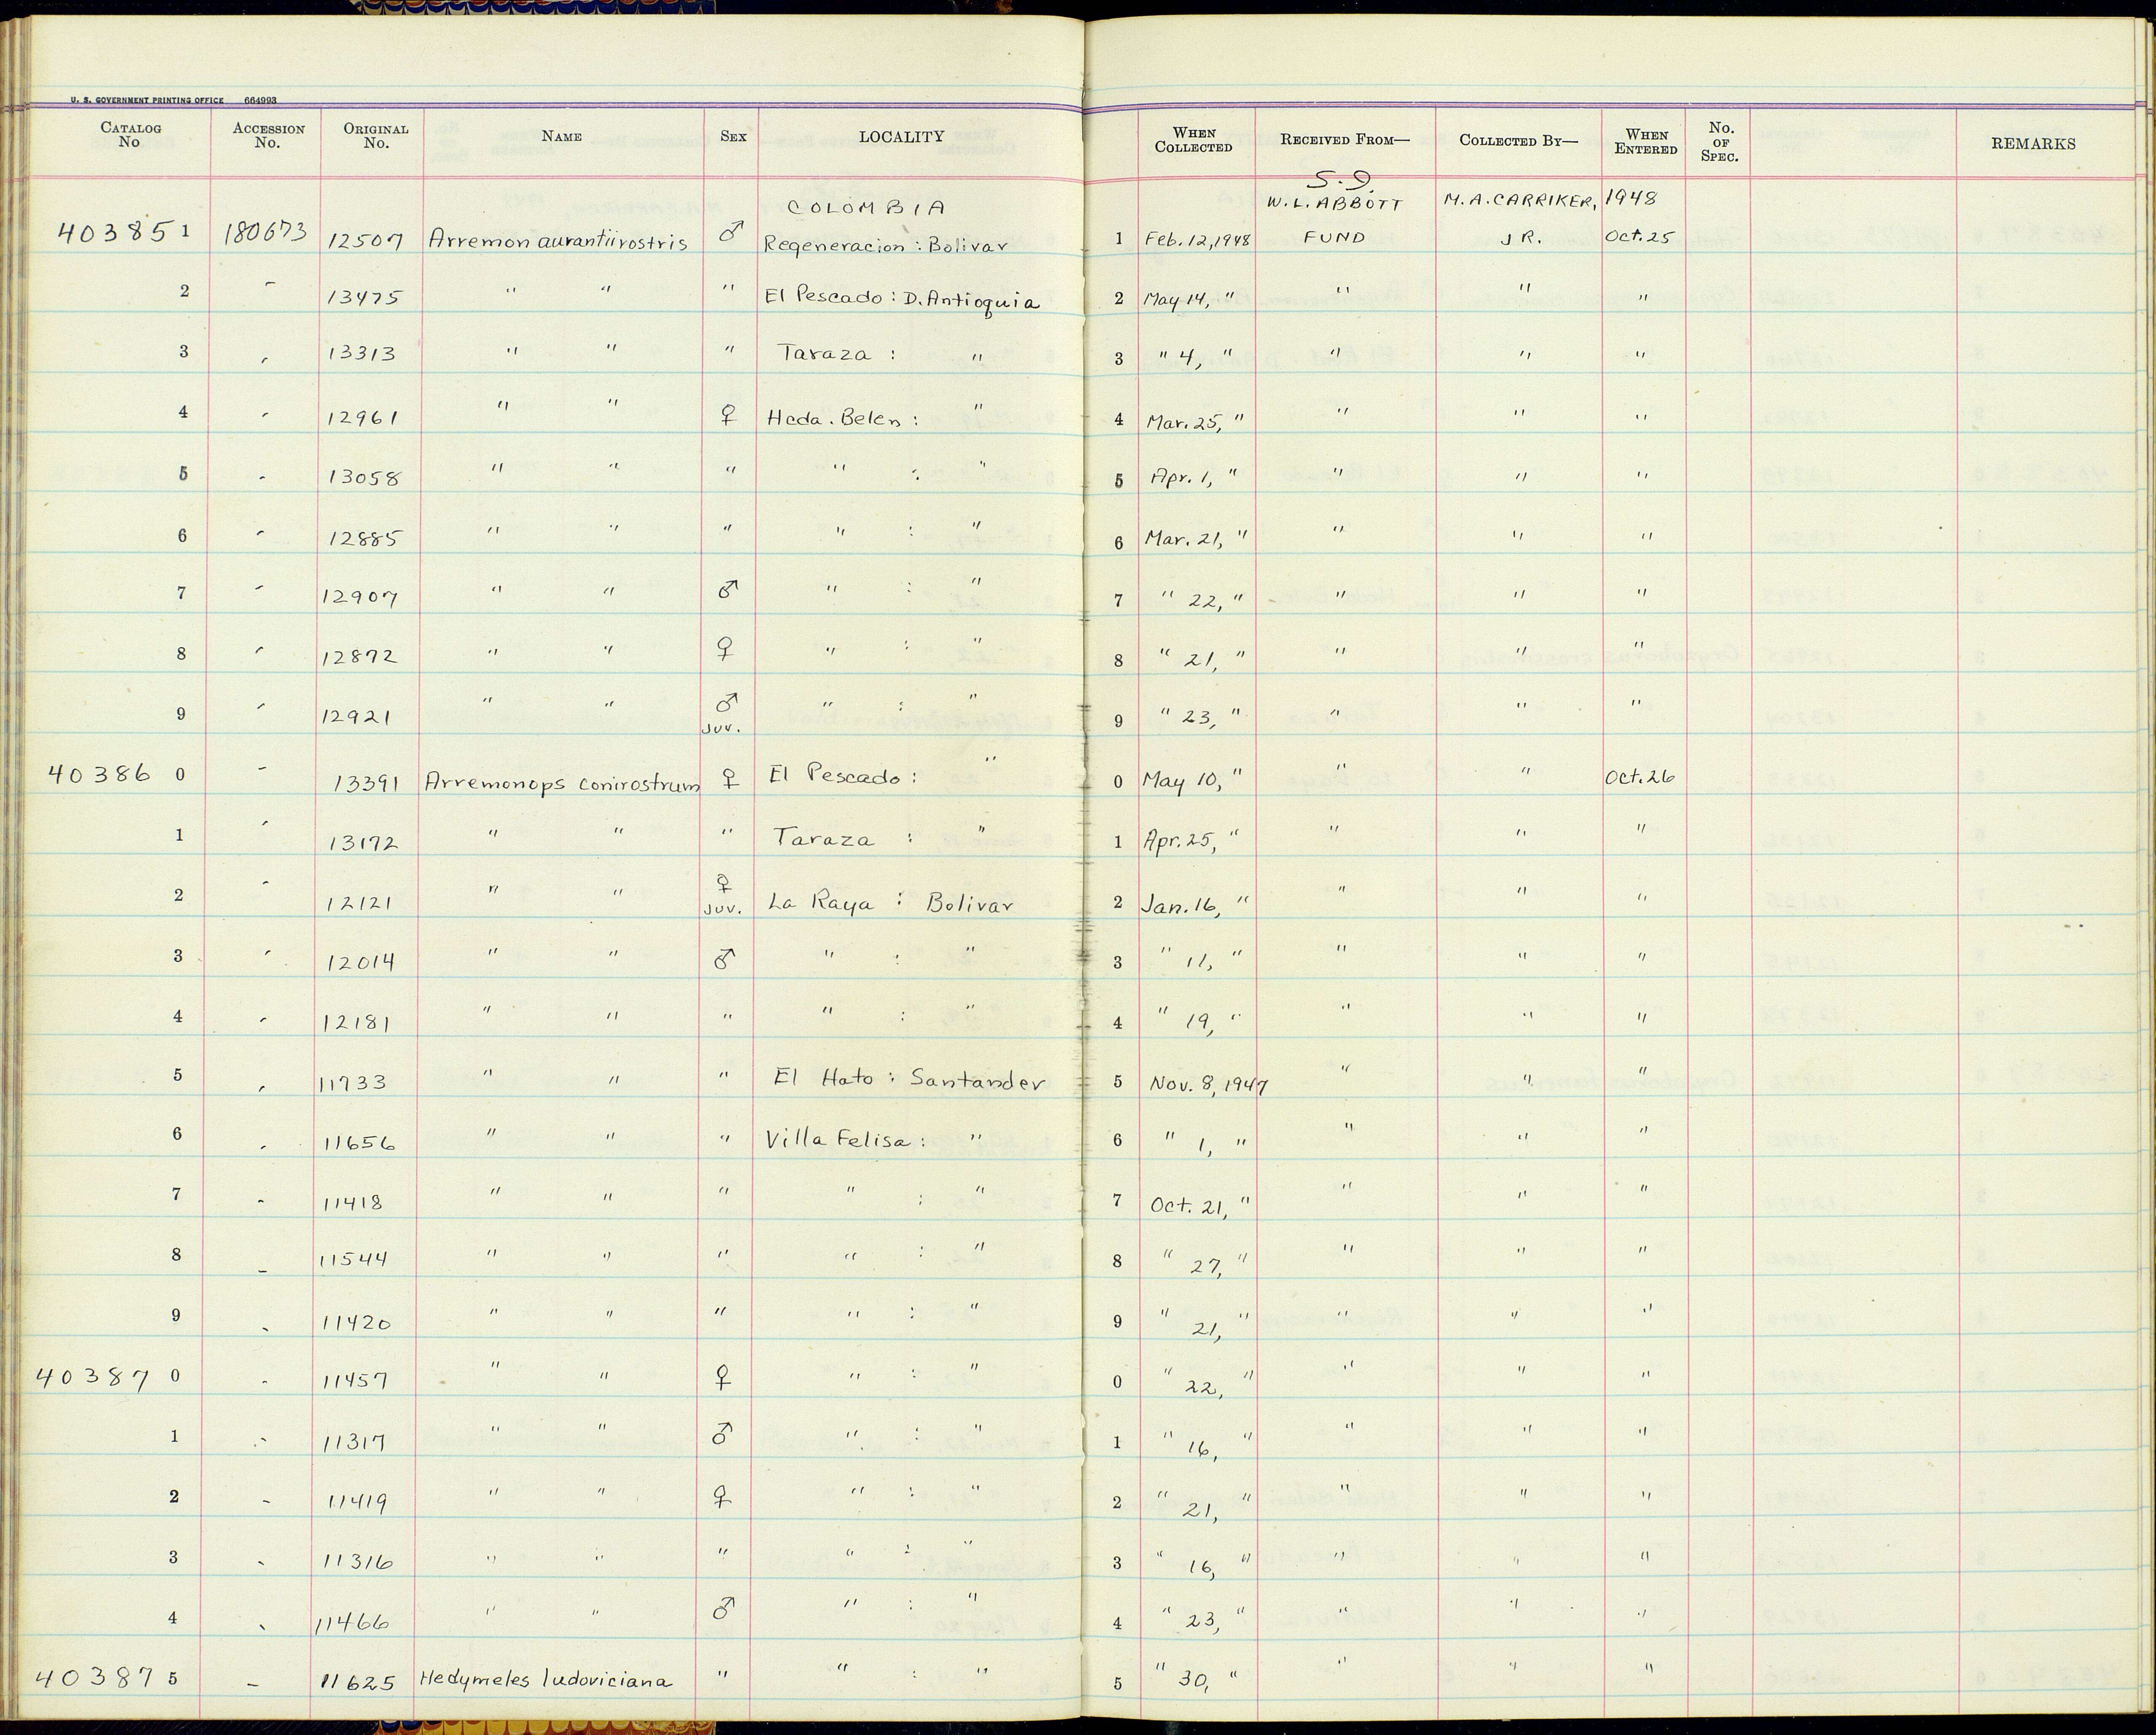 U. S. GOVERNMENT PRINTING OFFICE 664993
CATALOG No ACCESSION No. ORIGINAL No. NAME SEX LOCALITY WHEN COLLECTED RECEIVED FROM— COLLECTED BY— WHEN ENTERED No. OF SPEC. REMARKS
COLOMBIA W. L. ABBOTT M. A. CARRIKER, 1948
403851 180673 12507 Arremon aurantiirostris ♂ Regeneracion : Bolivar 1 Feb. 12, 1948 FUND JR. Oct. 25
2 " 13475 " " " El Pescado : D. Antioquia 2 May 14, " " " "
3 " 13313 " " " Taraza : " 3 " 4, " " " "
4 " 12961 " " ♀ Hcda. Belen : " 4 Mar. 25, " " " "
5 " 13058 " " " " : " 5 Apr. 1, " " " "
6 " 12885 " " " " : " 6 Mar. 21, " " " "
7 " 12907 " " ♂ " : " 7 " 22, " " " "
8 " 12872 " " ♀ " : " 8 " 21, " " " "
9 " 12921 " " ♂ Juv. " : " 9 " 23, " " " "
403860 " 13391 Arremonops conirostrum ♀ El Pescado : " 0 May 10, " " " Oct. 26
1 " 13172 " " " Taraza : " 1 Apr. 25, " " " "
2 " 12121 " " ♀ Juv. La Raya : Bolivar 2 Jan. 16, " " " "
3 " 12014 " " ♂ " : " 3 " 11, " " " "
4 " 12181 " " " " : " 4 " 19, " " " "
5 " 11733 " " " El Hato : Santander 5 Nov. 8, 1947 " " "
6 " 11656 " " " Villa Felisa : " 6 " 1, " " " "
7 " 11418 " " " " : " 7 Oct. 21, " " " "
8 " 11544 " " " " : " 8 " 27, " " " "
9 " 11420 " " " " : " 9 " 21, " " " "
403870 " 11457 " " ♀ " : " 0 " 22, " " " "
1 " 11317 " " ♂ " : " 1 " 16, " " " "
2 " 11419 " " ♀ " : " 2 " 21, " " " "
3 " 11316 " " " " : " 3 " 16, " " " "
4 " 11466 " " ♂ " : " 4 " 23, " " " "
403875 " 11625 Hedymeles ludoviciana " " : " 5 " 30, " " " "